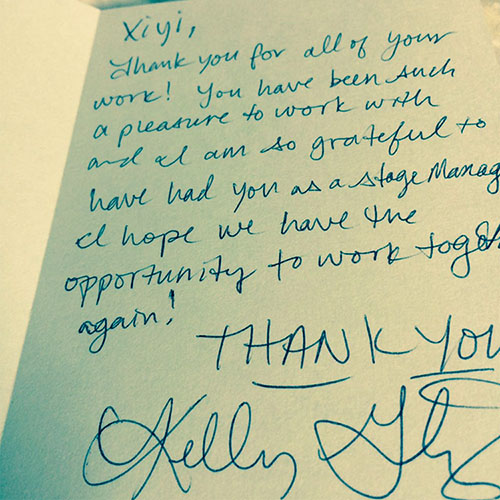 Xiyi,
Thank you for all of your
work! You have been such
a pleasure to work with
and I am so grateful to
have had you as a stage Manag
I hope we have the
opportunity to work togeth
again!
THANK YOU
Kelly